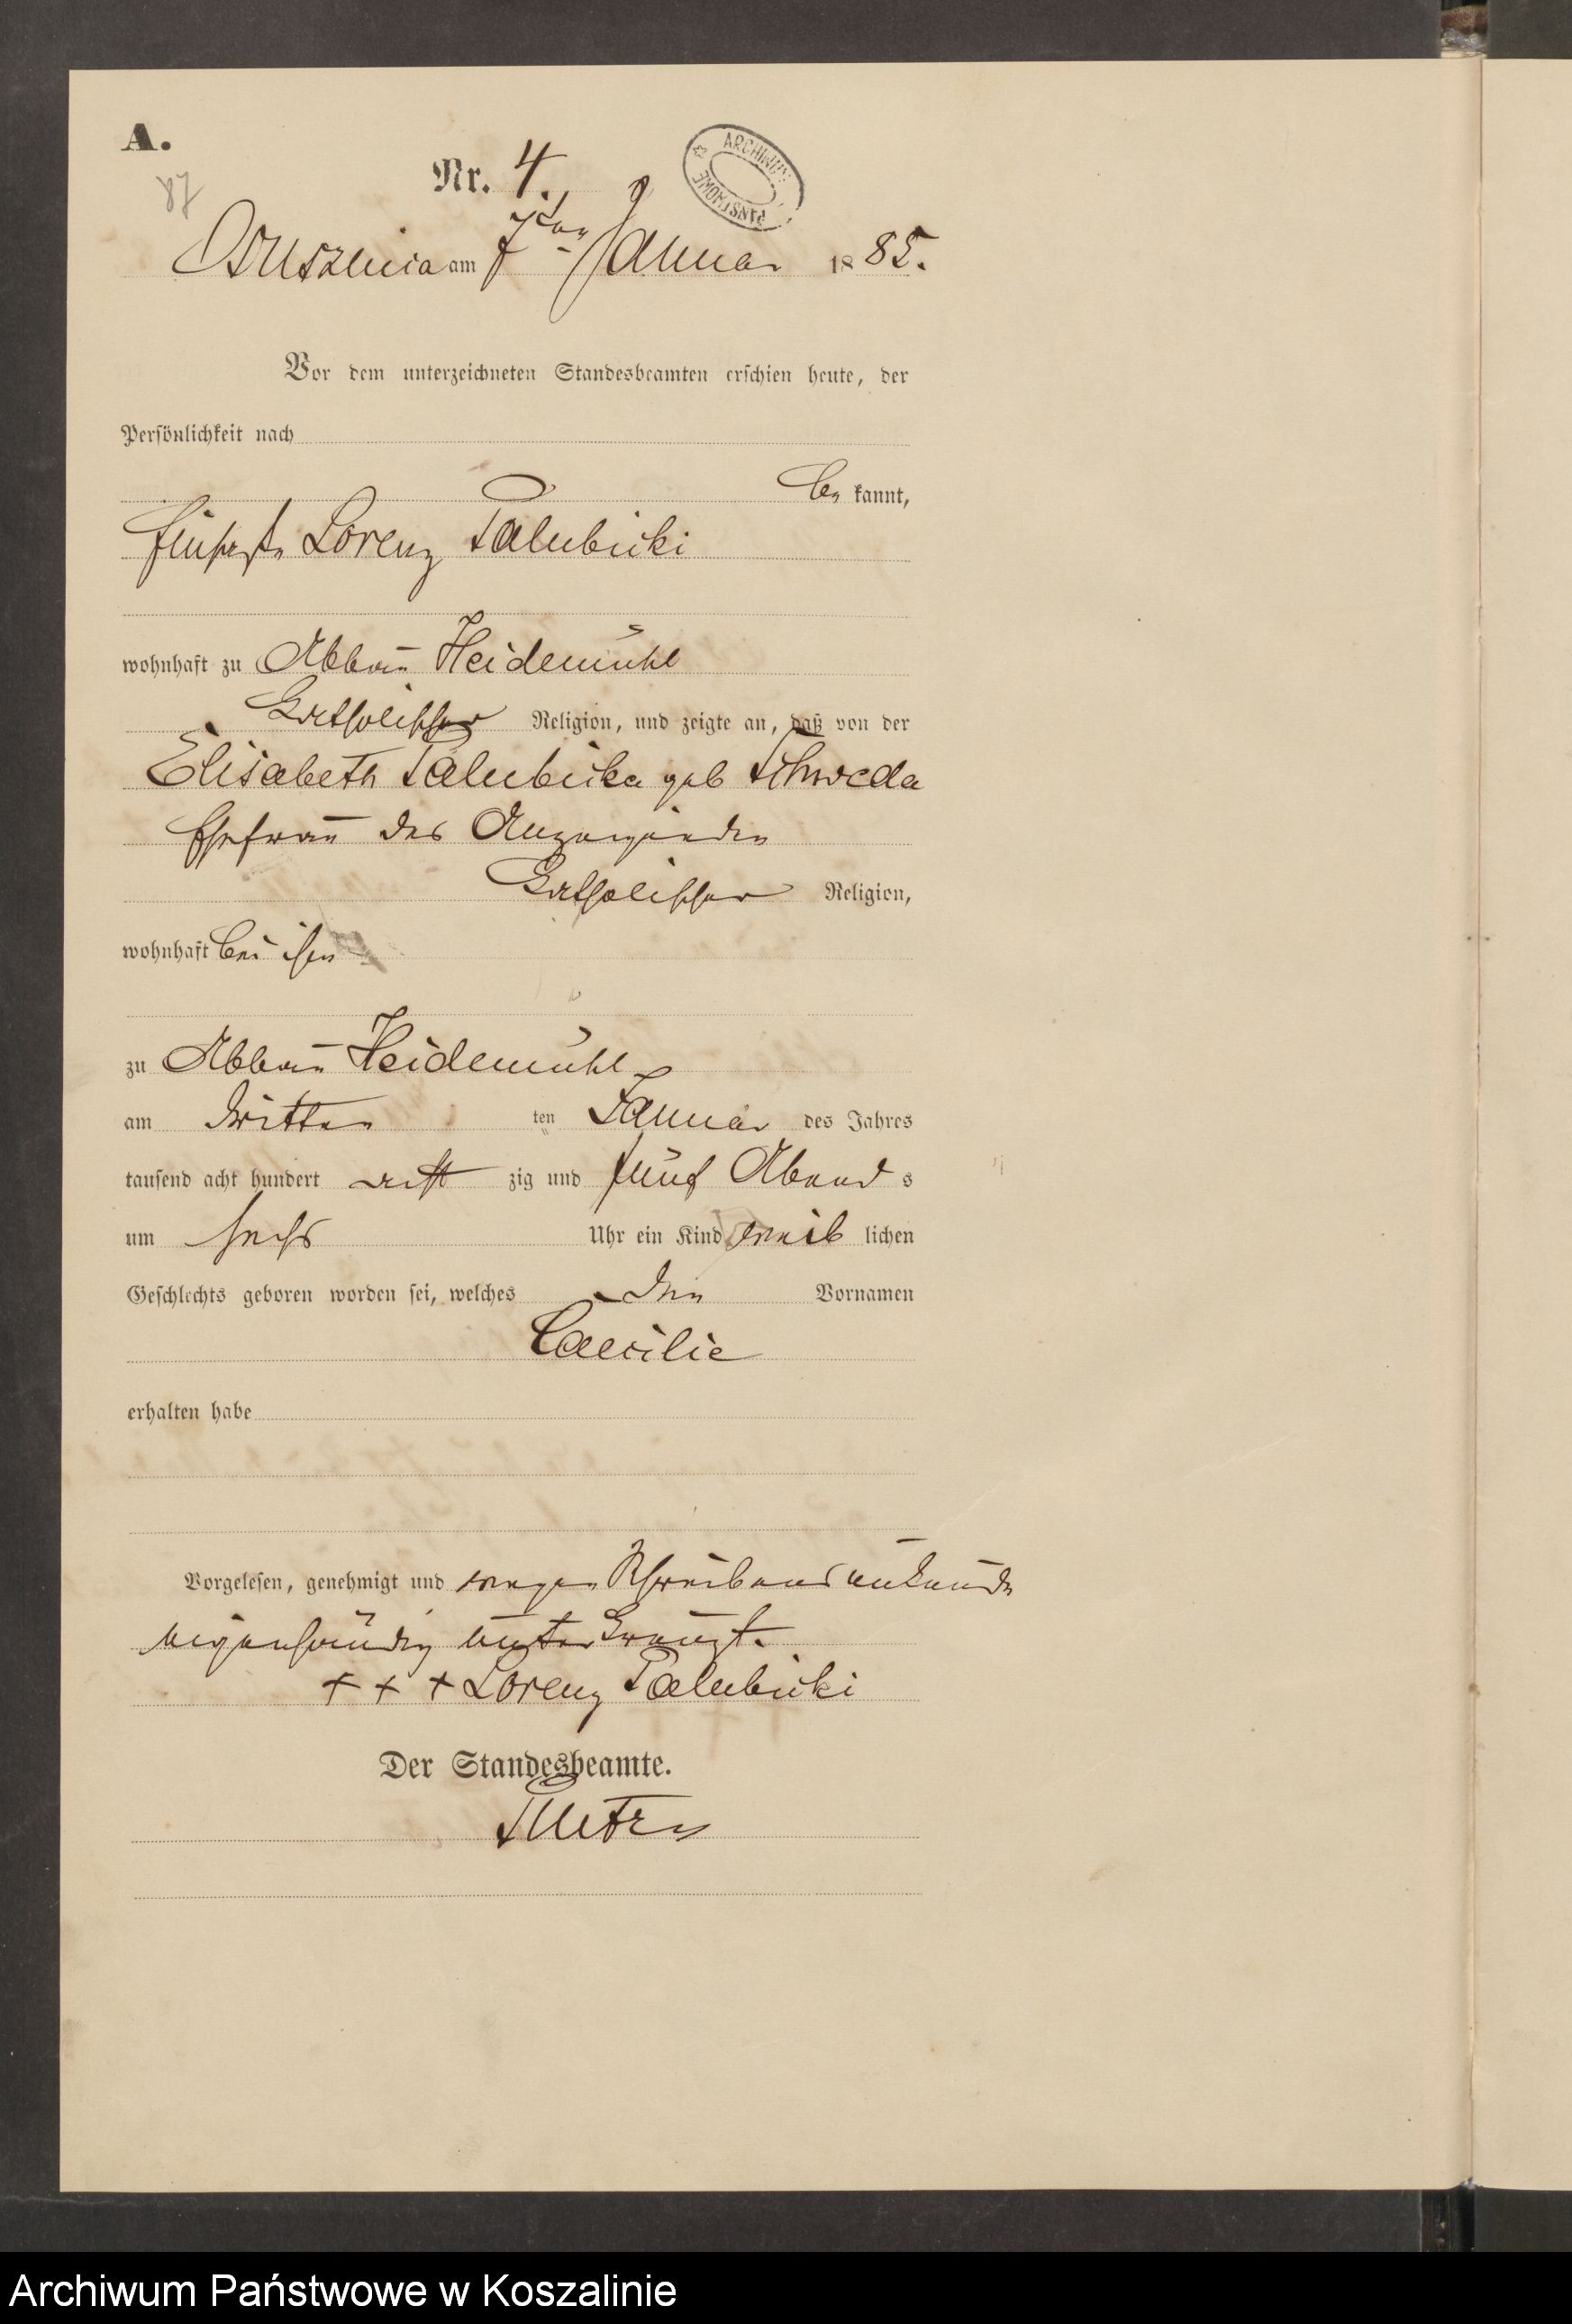 A.
87
Nr. 4.
ARCHIWUM PAŃSTWOWE
Osusznica am 7ten Januar 1885.
Vor dem unterzeichneten Standesbeamten erschien heute, der
Persönlichkeit nach
be kannt,
Lorenz Palubicki
wohnhaft zu Abbau Heidemühl
Katholischer Religion, und zeigte an, daß von der
Elisabeth Palubicka geb Schweda
Ehefrau des Anzeigenden
Katholischer Religion,
wohnhaft bei ihm
zu Abbau Heidemühl
am dritten ten Januar des Jahres
tausend acht hundert acht zig und fünf Abend s
um sechs Uhr ein Kind weib lichen
Geschlechts geboren worden sei, welches den Vornamen
Caecilie
erhalten habe
Vorgelesen, genehmigt und wegen Schreibensunkunde
eigenhändig unterkreuzt.
+ + + Lorenz Palubicki
Der Standesbeamte.
Archiwum Państwowe w Koszalinie